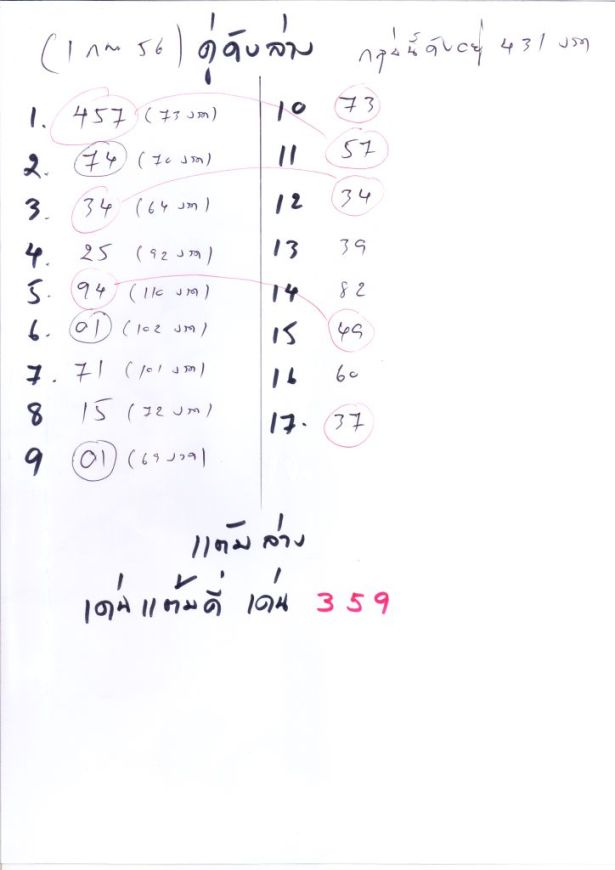 (1 กค 56) คู่ดับล่าง
กลุ่มนี้ดับอยู่ 431 งวด
1. 457 (73 งวด)
2. 74 (70 งวด)
3. 34 (64 งวด)
4. 25 (92 งวด)
5. 94 (110 งวด)
6. 01 (102 งวด)
7. 71 (101 งวด)
8 15 (72 งวด)
9 01 (69 งวด)
10 73
11 57
12 34
13 39
14 82
15 49
16 60
17. 37
แต้มล่าง
เด่นแต้มคี่ เด่น 359